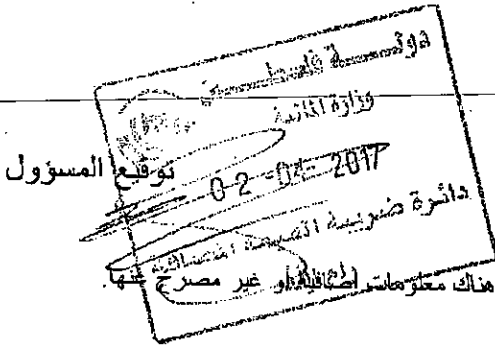 دولة فلسطين
وزارة المالية
توقيع المسؤول
02-04-2017
دائرة ضريبة القيمة المضافة
هناك معلومات اضافية او غير مصرح عنها.